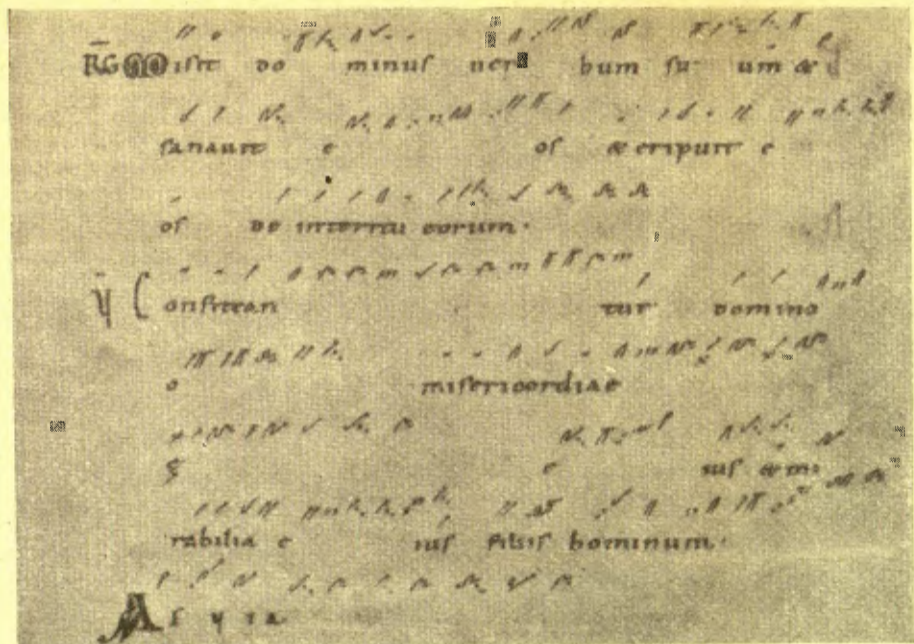 RG Misit do minus uer bum su um &
sanauit e os & eripuit e
os de interitu eorum.
V Confitean tur domino
misericordiae
e ius & mi
rabilia e ius filiis hominum.